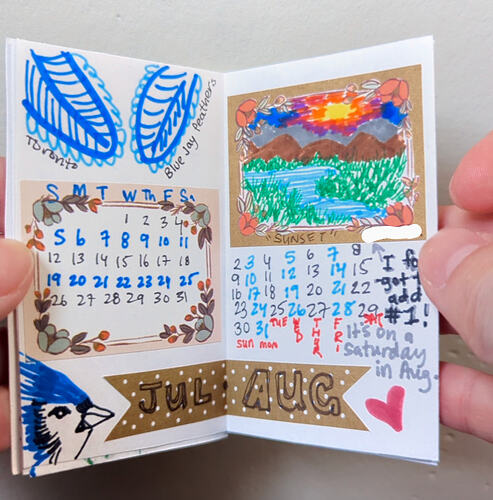 Toronto
Blue Jay Feathers
S M T W Th F Sa
1 2 3 4
5 6 7 8 9 10 11
12 13 14 15 16 17 18
19 20 21 22 23 24 25
26 27 28 29 30 31
JUL
"SUNSET"
2 3 4 5 6 7 8
9 10 11 12 13 14 15
16 17 18 19 20 21 22
23 24 25 26 27 28 29
30 31
sun mon TUE WED THUR FRI SAT
I
add
#1!
it's on a
saturday
in Aug.
AUG